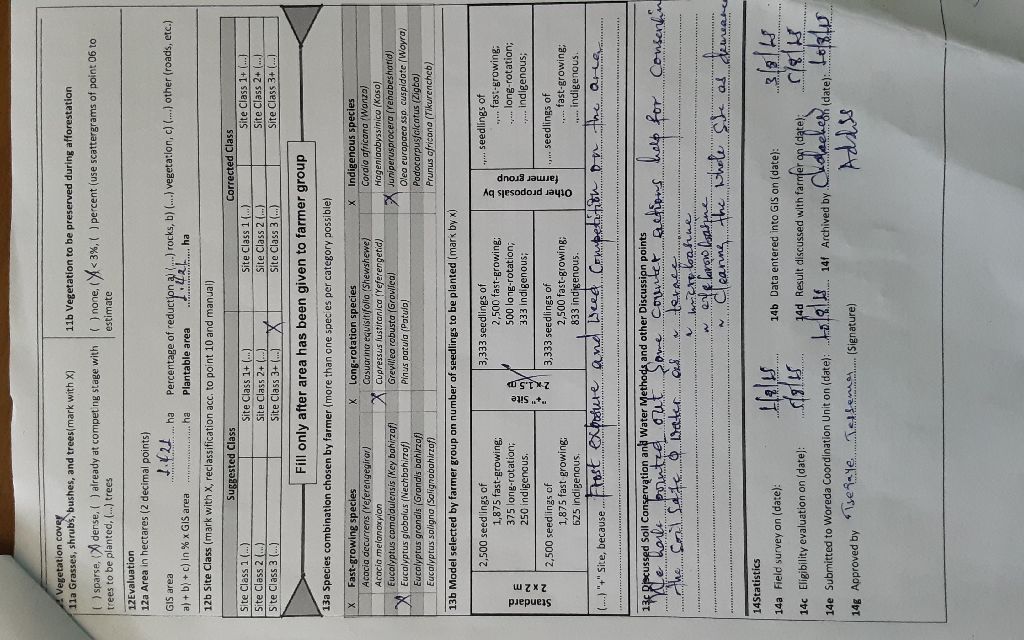 11 Vegetation cover
11a Grasses, shrubs, bushes, and trees(mark with X)
( ) sparse, (X) dense, ( ) already at competing stage with
trees to be planted, (...) trees
11b Vegetation to be preserved during afforestation
( ) none, (X) < 3%, ( ) percent (use scattergrams of point 06 to
estimate
12Evaluation
12a Area in hectares (2 decimal points)
GIS area ha Percentage of reduction a) (...) rocks, b) (...) vegetation, c) (....) other (roads, etc.)
a) + b) + c) in % x GIS area ha Plantable area ha
12b Site Class (mark with X, reclassification acc. to point 10 and manual)
Suggested Class Corrected Class
Site Class 1 (...) Site Class 1+ (...) Site Class 1 (...) Site Class 1+ (...)
Site Class 2 (...) Site Class 2+ (...) Site Class 2 (...) Site Class 2+ (...)
Site Class 3 (...) Site Class 3+ (...) X Site Class 3 (...) Site Class 3+ (...)
Fill only after area has been given to farmer group
13a Species combination chosen by farmer (more than one species per category possible)
X Fast-growing species X Long-rotation species X Indigenous species
Acacia decurrens (Yeferengegirar) Casuarina equisinfolia (Shewshewe) Cordia africana (Wanza)
Acacia melanoxylon X Cupressus lustranica (Yeferengetid) Hageniaabyssinica (Koso)
Eucalyptus camaldulensis (Key bahirzaf) Grevillea robusta (Gravillea) X Juniperusprocera (Yehabeshatid)
X Eucalyptus globulus (Nechbahirzaf) Pinus patula (Patula) Olea europaea ssp. cuspidate (Woyra)
Eucalyptus grandis (Grandis bahirzaf) Podocarpusfalcatus (Zigba)
Eucalyptus saligna (Salignabahirzaf) Prunus africana (Tikurencheb)
13b Model selected by farmer group on number of seedlings to be planted (mark by x)
Standard
2 x 2 m
2,500 seedlings of
1,875 fast-growing;
375 long-rotation;
250 indigenous.
2,500 seedlings of
1,875 fast-growing;
625 indigenous.
"+" Site
2 x 1.5 m
X
3,333 seedlings of
2,500 fast-growing;
500 long-rotation;
333 indigenous;
3,333 seedlings of
2,500 fast-growing;
833 indigenous.
Other proposals by
farmer group
..... seedlings of
..... fast-growing;
..... long-rotation;
..... indigenous;
..... seedlings of
..... fast-growing;
..... indigenous.
(...) "+" Site, because Frost exposure and weed Competition on the area
13c Discussed Soil Conservation and Water Methods and other Discussion points
We have pointed out Some counter actions help for
the Soil Safe & water as terrace
micro basine
eyebrow basine
Cleaning the whole site as
14Statistics
14a Field survey on (date):
14b Data entered into GIS on (date):
14c Eligibility evaluation on (date):
14d Result discussed with farmer on (date):
14e Submitted to Woreda Coordination Unit on (date):
14f Archived by on (date):
14g Approved by Tsegaye (Signature)